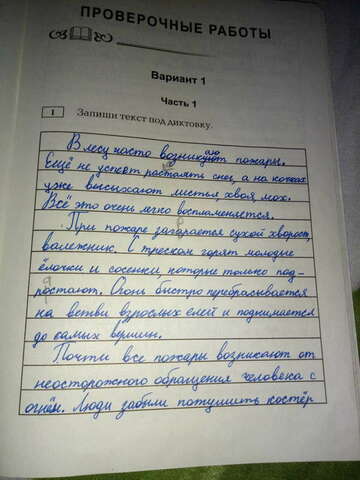 ПРОВЕРОЧНЫЕ РАБОТЫ
Вариант 1
Часть 1
1 Запиши текст под диктовку.
В лесу часто возникают пожары.
Ещё не успеет растаять снег, а на кочках
уже высыхают листья, хвоя, мох.
Всё это очень легко воспламеняется.
При пожаре загорается сухой хворост,
валежник. С треском горят молодые
ёлочки и сосенки, которые только под-
ростают. Огонь быстро перебрасывается
на ветви взрослых елей и поднимается
до самых вершин.
Почти все пожары возникают от
неосторожного обращения человека с
огнём. Люди забыли потушить костёр